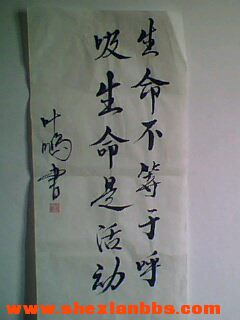 生命不等于呼
吸生命是活动
叶鸣书
www.shexianbbs.com